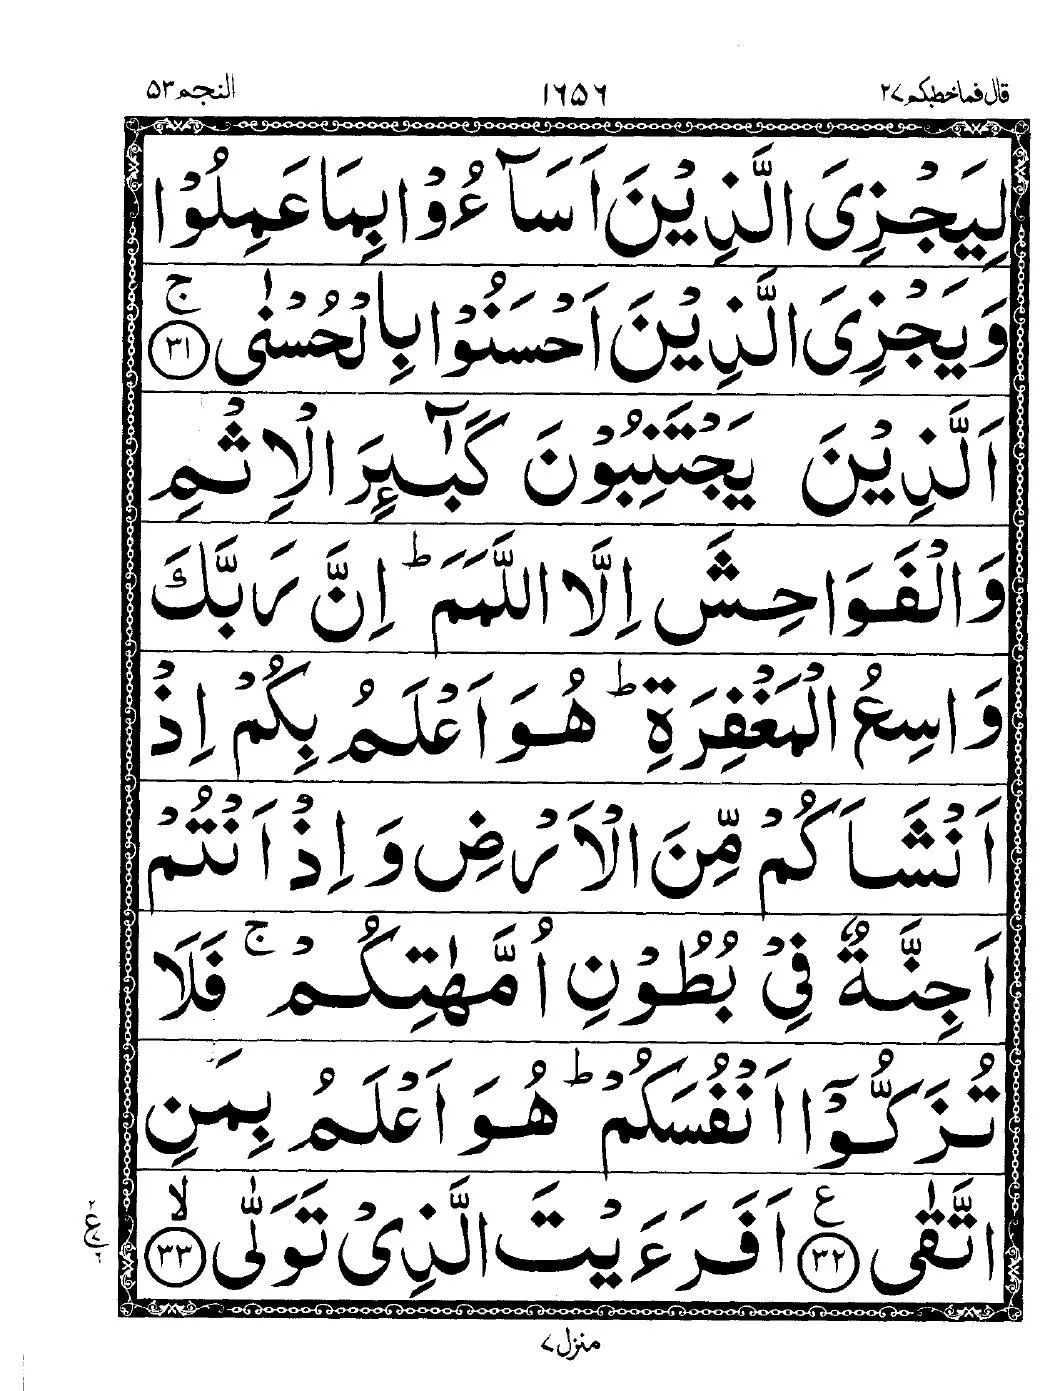 قال فما خطبکم ۲۷ ۱۶۵۶ النجم ۵۳
لِيَجْزِيَ الَّذِيْنَ اَسَآءُوْا بِمَا عَمِلُوْا
وَيَجْزِيَ الَّذِيْنَ اَحْسَنُوْا بِالْحُسْنٰى ۚ ﴿۳۱﴾
اَلَّذِيْنَ يَجْتَنِبُوْنَ كَبٰٓىِٕرَ الْاِثْمِ
وَالْفَوَاحِشَ اِلَّا اللَّمَمَ ؕ اِنَّ رَبَّكَ
وَاسِعُ الْمَغْفِرَةِ ؕ هُوَ اَعْلَمُ بِكُمْ اِذْ
اَنْشَاَكُمْ مِّنَ الْاَرْضِ وَاِذْ اَنْتُمْ
اَجِنَّةٌ فِيْ بُطُوْنِ اُمَّهٰتِكُمْ ۚ فَلَا
تُزَكُّوْٓا اَنْفُسَكُمْ ؕ هُوَ اَعْلَمُ بِمَنِ
اتَّقٰى ﴿۳۲﴾ ع اَفَرَءَيْتَ الَّذِيْ تَوَلّٰى ﴿۳۳﴾ لا
۲ ع ۶
منزل ۷